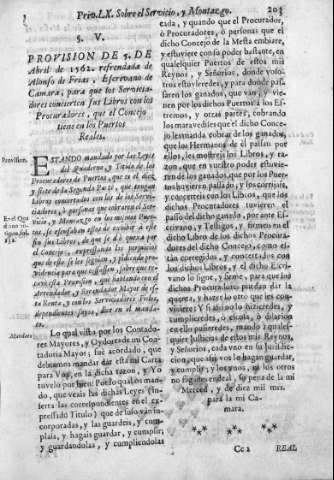 Priv. LX. Sobre el Servicio, y Montazgo. 203
§. V.
PROVISION DE 5. DE
Abril de 1562. refrendada de
Alonso de Frias, Escrivano de
Camara, para que los Servicia-
dores concierten sus Libros con los
Procuradores, que el Concejo
tiene en los Puertos
Reales.
Provision.
ESTANDO mandado por las Leyes
del Quaderno, y Titulo de los
Procuradores de Puertos, que es el diez,
y siete de la Segunda Parte, que tengan
Libros concertados con los de los Servi-
ciadores, y personas que cobraren el Ser-
vicio, y Montazgo en los mismos Puer-
tos, se escusaban estos de exivir
sus Libros, de que se dió quexa por
el Concejo, expressando los perjuicios
que de ello se les seguian, y pidiendo pro-
videncia para que cessassen, sobre que re-
cayó esta Provision, que hablando con el
Arrendador, y Recaudador Mayor de es-
ta Renta, y con los Serviciadores Fieles,
dependientes suyos, dice en el manda-
to.
Mandato.
Lo qual visto por los Contado-
res Mayores, y Oydores de mi Con-
taduria Mayor; fue acordado, que
debiamos mandar dar esta mi Carta
para Vos, en la dicha razon, y Yo
tuvelo por bien: Por lo qual os man-
do, que veais las dichas Leyes (in-
sertas las correspondientes en el ex-
pressado Titulo) que de suso ván in-
corporadas, y las guardeis, y cum-
plais, y hagais guardar, y cumplir;
y guardandolas, y cumpliendolas
cada, y quando que el Procurador,
ò Procuradores, ò personas que el
dicho Concejo de la Mesta embiare,
y estuviere con su poder bastante, en
qualquier Puertos de estos mis
Reynos, y Señorios, donde voso-
tros estuvieredes, y para donde pas-
saren los ganados, que van, y vie-
nen por los dichos Puertos à los Es-
tremos, y otras partes, cobrando
los maravedises que el dicho Conce-
jo lemanda, cobrar de los ganados,
que los Hermanos de él passan por
ellos, les mostreis los Libros, y ra-
zon, que en vuestro poder estuvie-
ren de los ganados, que por los Puer-
tos huvieren passado, y los corrijais,
y concerteis con los Libros, que los
dichos Procuradores tuvieren del
passo del dicho ganado, por ante Es-
crivano, y Testigos, y firmeis en el
dicho Libro de los dichos Procura-
dores del dicho Concejo, como es-
tán corregidos, y concertados con
los dichos Libros, y el dicho Escri-
vano lo signe, y firme, para que los
dichos Procuradores puedan dar la
quenta, y hacer lo otro que les con-
viniere: Y si assi no lo hizieredes, y
cumplieredes, ò escusa, ò dilacion
en ello pusieredes, mando à quales-
quier Justicias de estos mis Reynos,
y Señorios, cada uno en su Jurisdi-
cion, que assi vos lo hagan guardar,
y cumplir; y los unos, ni los otros
no fagades ende al, so pena de la mi
Merced, y de diez mil mrs.
para la mi Ca-
mara.
Cc 2 REAL